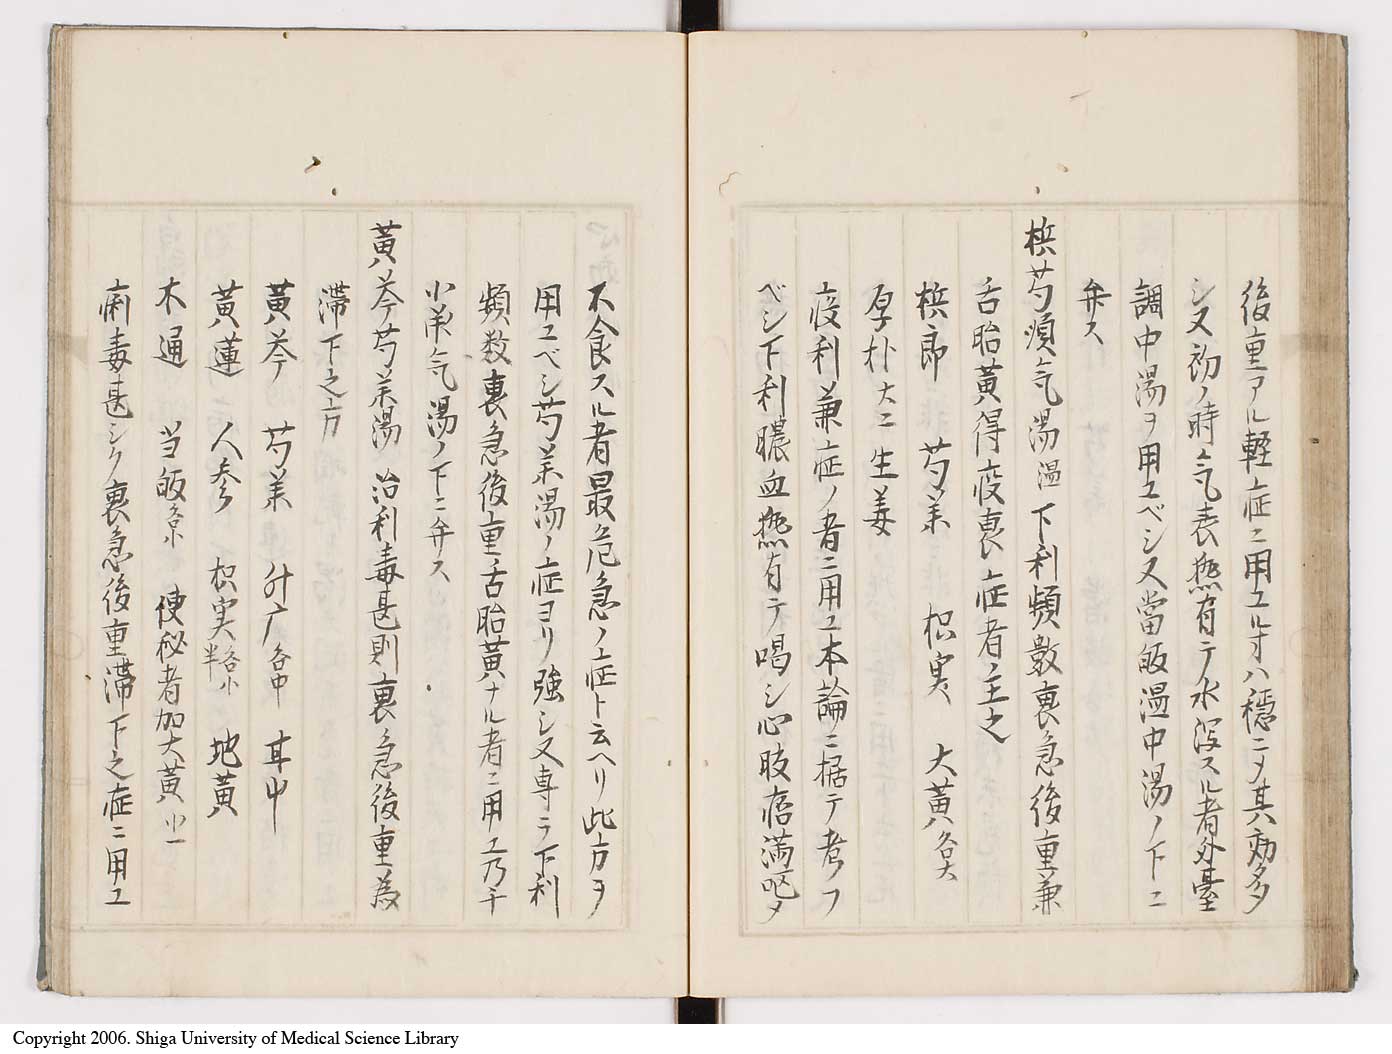 後重アル軽症ニ用ユルオハ穏ニ〆其効多
シ又初ノ時气表熱有テ水泻スル者外䑓
調中湯ヲ用ユベシ又當皈温中湯ノ下ニ
弁ス
梹芍順气湯 温 下利頻數裏急後重兼
舌胎黄得疫裏症者主之
梹郎 芍薬 枳実 大黄各大
厚朴大ニ 生姜
疫利兼症ノ者ニ用ユ本論ニ据テ考フ
ベシ下利膿血熱有テ喝シ心肢痞満呕〆
不食スル者最危急ノ症ト云ヘリ此方ヲ
用ユベシ芍薬湯ノ症ヨリ強シ又専ラ下利
頻数裏急後重舌胎黄ナル者ニ用ユ乃チ
小承气湯ノ下ニ弁ス
黄芩芍薬湯 治利毒甚則裏急後重為
滞下之方
黄芩 芍薬 升广各中 甘中
黄蓮 人参 枳実各小半 地黄
木通 当皈各小 便秘者加大黄小一
痢毒甚シク裏急後重滞下之症ニ用ユ
Copyright 2006. Shiga University of Medical Science Library